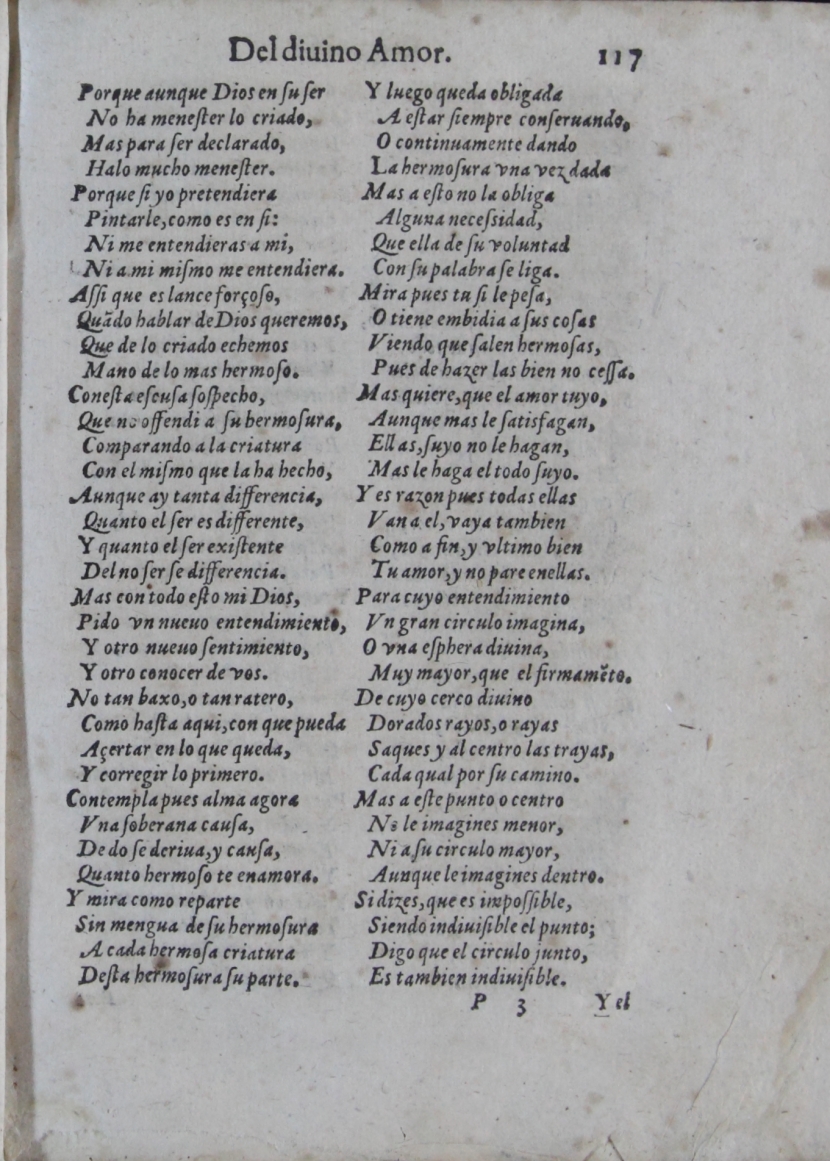 Del diuino Amor. 117
Porque aunque Dios en ſu ſer
No ha meneſter lo criado,
Mas para ſer declarado,
Halo mucho meneſter.
Porque ſi yo pretendiera
Pintarle, como es en ſi:
Ni me entendieras a mi,
Ni a mi miſmo me entendiera.
Aſſi que es lance forçoſo,
Quãdo hablar de Dios queremos,
Que de lo criado echemos
Mano de lo mas hermoſo.
Con eſta eſcuſa ſoſpecho,
Que no offendi a ſu hermoſura,
Comparando a la criatura
Con el miſmo que la ha hecho,
Aunque ay tanta differencia,
Quanto el ſer es differente,
Y quanto el ſer exiſtente
Del no ſer ſe differencia.
Mas con todo eſto mi Dios,
Pido vn nueuo entendimiento,
Y otro nueuo ſentimiento,
Y otro conocer de vos.
No tan baxo, o tan ratero,
Como haſta aqui, con que pueda
Açertar en lo que queda,
Y corregir lo primero.
Contempla pues alma agora
Vna ſoberana cauſa,
De do ſe deriua, y cauſa,
Quanto hermoſo te enamora.
Y mira como reparte
Sin mengua de ſu hermoſura
A cada hermoſa criatura
Deſta hermoſura ſu parte.
Y luego queda obligada
A eſtar ſiempre conſeruando,
O continuamente dando
La hermoſura vna vez dada
Mas a eſto no la obliga
Alguna neceſsidad,
Que ella de ſu voluntad
Con ſu palabra ſe liga.
Mira pues tu ſi le peſa,
O tiene embidia a ſus coſas
Viendo que ſalen hermoſas,
Pues de hazer las bien no ceſſa.
Mas quiere, que el amor tuyo,
Aunque mas le ſatisfagan,
Ellas, ſuyo no le hagan,
Mas le haga el todo ſuyo.
Y es razon pues todas ellas
Van a el, vaya tambien
Como a fin, y vltimo bien
Tu amor, y no pare en ellas.
Para cuyo entendimiento
Vn gran circulo imagina,
O vna eſphera diuina,
Muy mayor, que el firmamẽto.
De cuyo cerco diuino
Dorados rayos, o rayas
Saques y al centro las trayas,
Cada qual por ſu camino.
Mas a eſte punto o centro
No le imagines menor,
Ni a ſu circulo mayor,
Aunque le imagines dentro.
Si dizes, que es impoſſible,
Siendo indiuiſible el punto;
Digo que el circulo junto,
Es tambien indiuiſible.
P 3 Y el